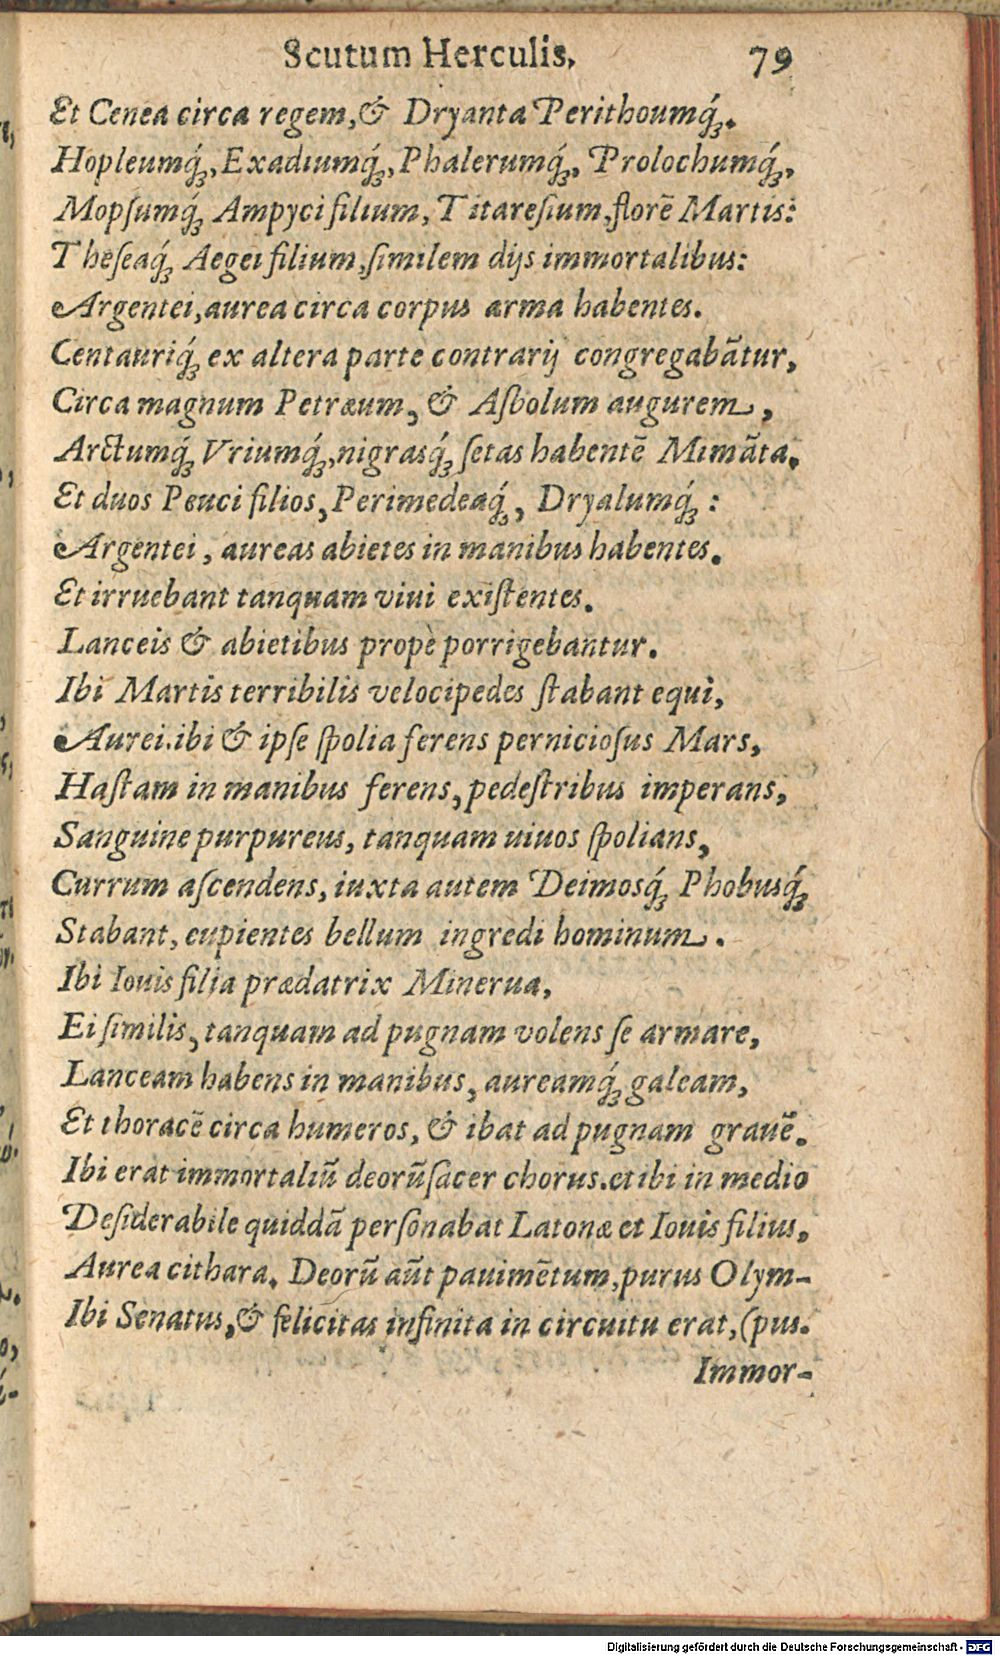 Scutum Herculis, 79
Et Cenea circa regem, & Dryanta Perithoumq́ꝫ.
Hopleumq́ꝫ, Exadiumq́ꝫ, Phalerumq́ꝫ, Prolochumq́ꝫ,
Mopſumq́ꝫ Ampyci filium, Titareſium, florē Martis:
Theſeaq́ꝫ Aegei filium, ſimilem dijs immortalibus:
Argentei, aurea circa corpus arma habentes.
Centauriq́ꝫ ex altera parte contrarij congregabātur,
Circa magnum Petræum, & Aſbolum augurem,
Arctumq́ꝫ Vriumq́ꝫ, nigrasq́ꝫ ſetas habentē Mimāta.
Et duos Peuci filios, Perimedeaq́ꝫ, Dryalumq́ꝫ :
Argentei, aureas abietes in manibus habentes.
Et irruebant tanquam viui exiſtentes.
Lanceis & abietibus propè porrigebantur.
Ibi Martis terribilis velocipedes ſtabant equi,
Aurei. ibi & ipſe ſpolia ferens pernicioſus Mars,
Haſtam in manibus ferens, pedeſtribus imperans,
Sanguine purpureus, tanquam uiuos ſpolians,
Currum aſcendens, iuxta autem Deimosq́ꝫ Phobusq́ꝫ
Stabant, cupientes bellum ingredi hominum.
Ibi Iouis filia prædatrix Minerua,
Ei ſimilis, tanquam ad pugnam volens ſe armare,
Lanceam habens in manibus, aureamq́ꝫ galeam,
Et thoracē circa humeros, & ibat ad pugnam grauē.
Ibi erat immortaliū deorū ſacer chorus. et ibi in medio
Deſiderabile quiddā perſonabat Latonæ et Iouis filius,
Aurea cithara. Deorū aūt pauimētum, purus Olym-
Ibi Senatus, & felicitas infinita in circuitu erat, (pus.
Immor-
Digitalisierung gefördert durch die Deutsche Forschungsgemeinschaft - DFG